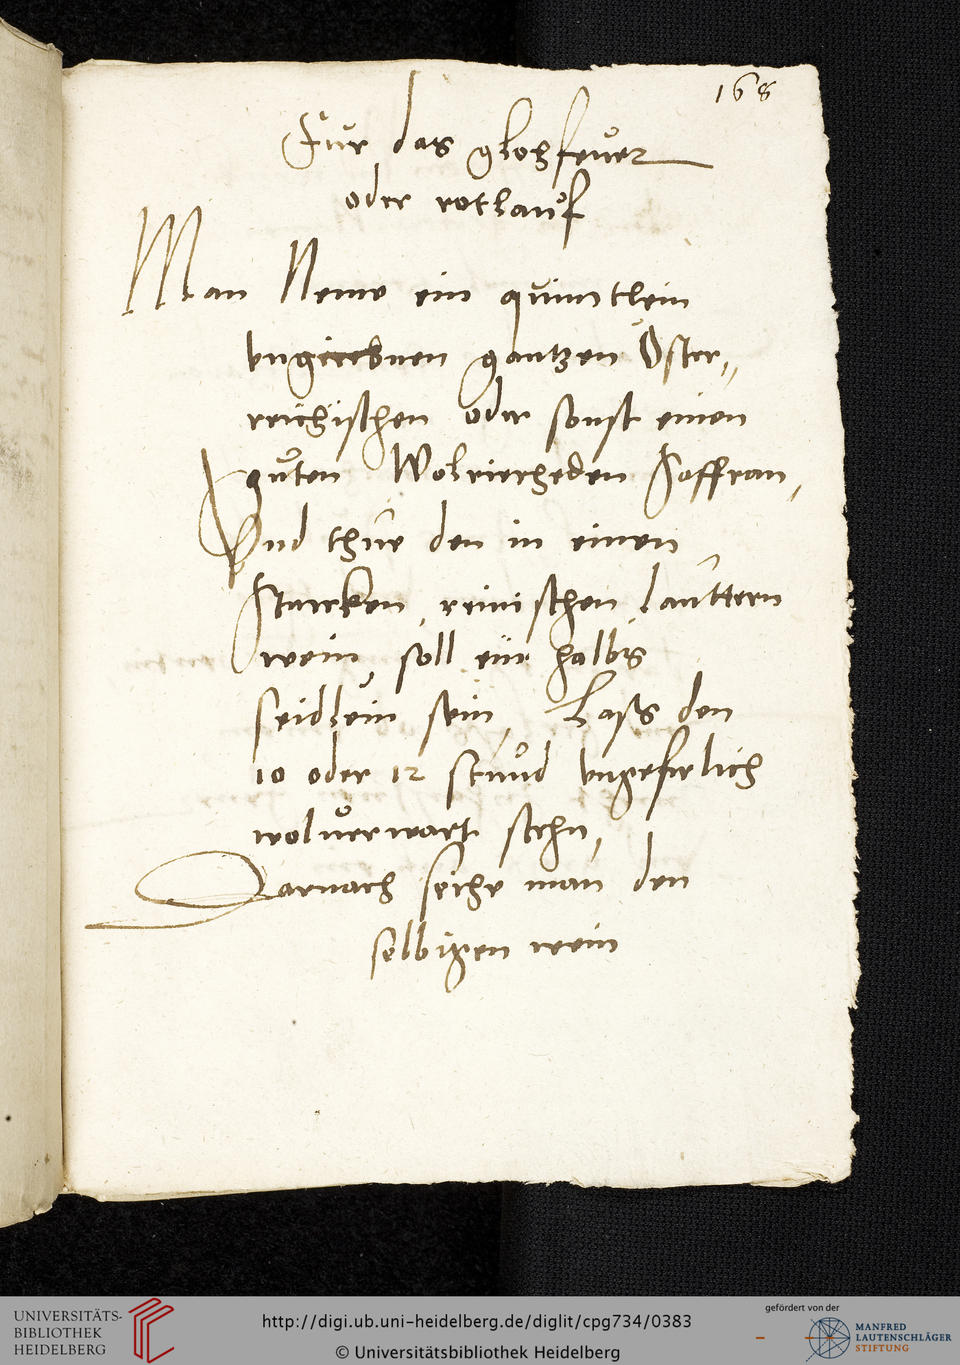 168
Für das glohfeuer
oder rotlauf
Man Neme ein quinntlein
vngeribnen gantzen Öster,,
reichischen oder sonst einen
guten Wolriecheden Saffran,
Vnd thue den in einen
starcken, reinischen lauttern
wein, soll ein halbs
seidlein sein, Lass den
10 oder 12 stund vngeferlich
woluerwart stehn,
Darnach seihe man den
selbigen wein
UNIVERSITÄTS-
BIBLIOTHEK
HEIDELBERG
http://digi.ub.uni-heidelberg.de/diglit/cpg734/0383
© Universitätsbibliothek Heidelberg
gefördert von der
MANFRED
LAUTENSCHLÄGER
STIFTUNG